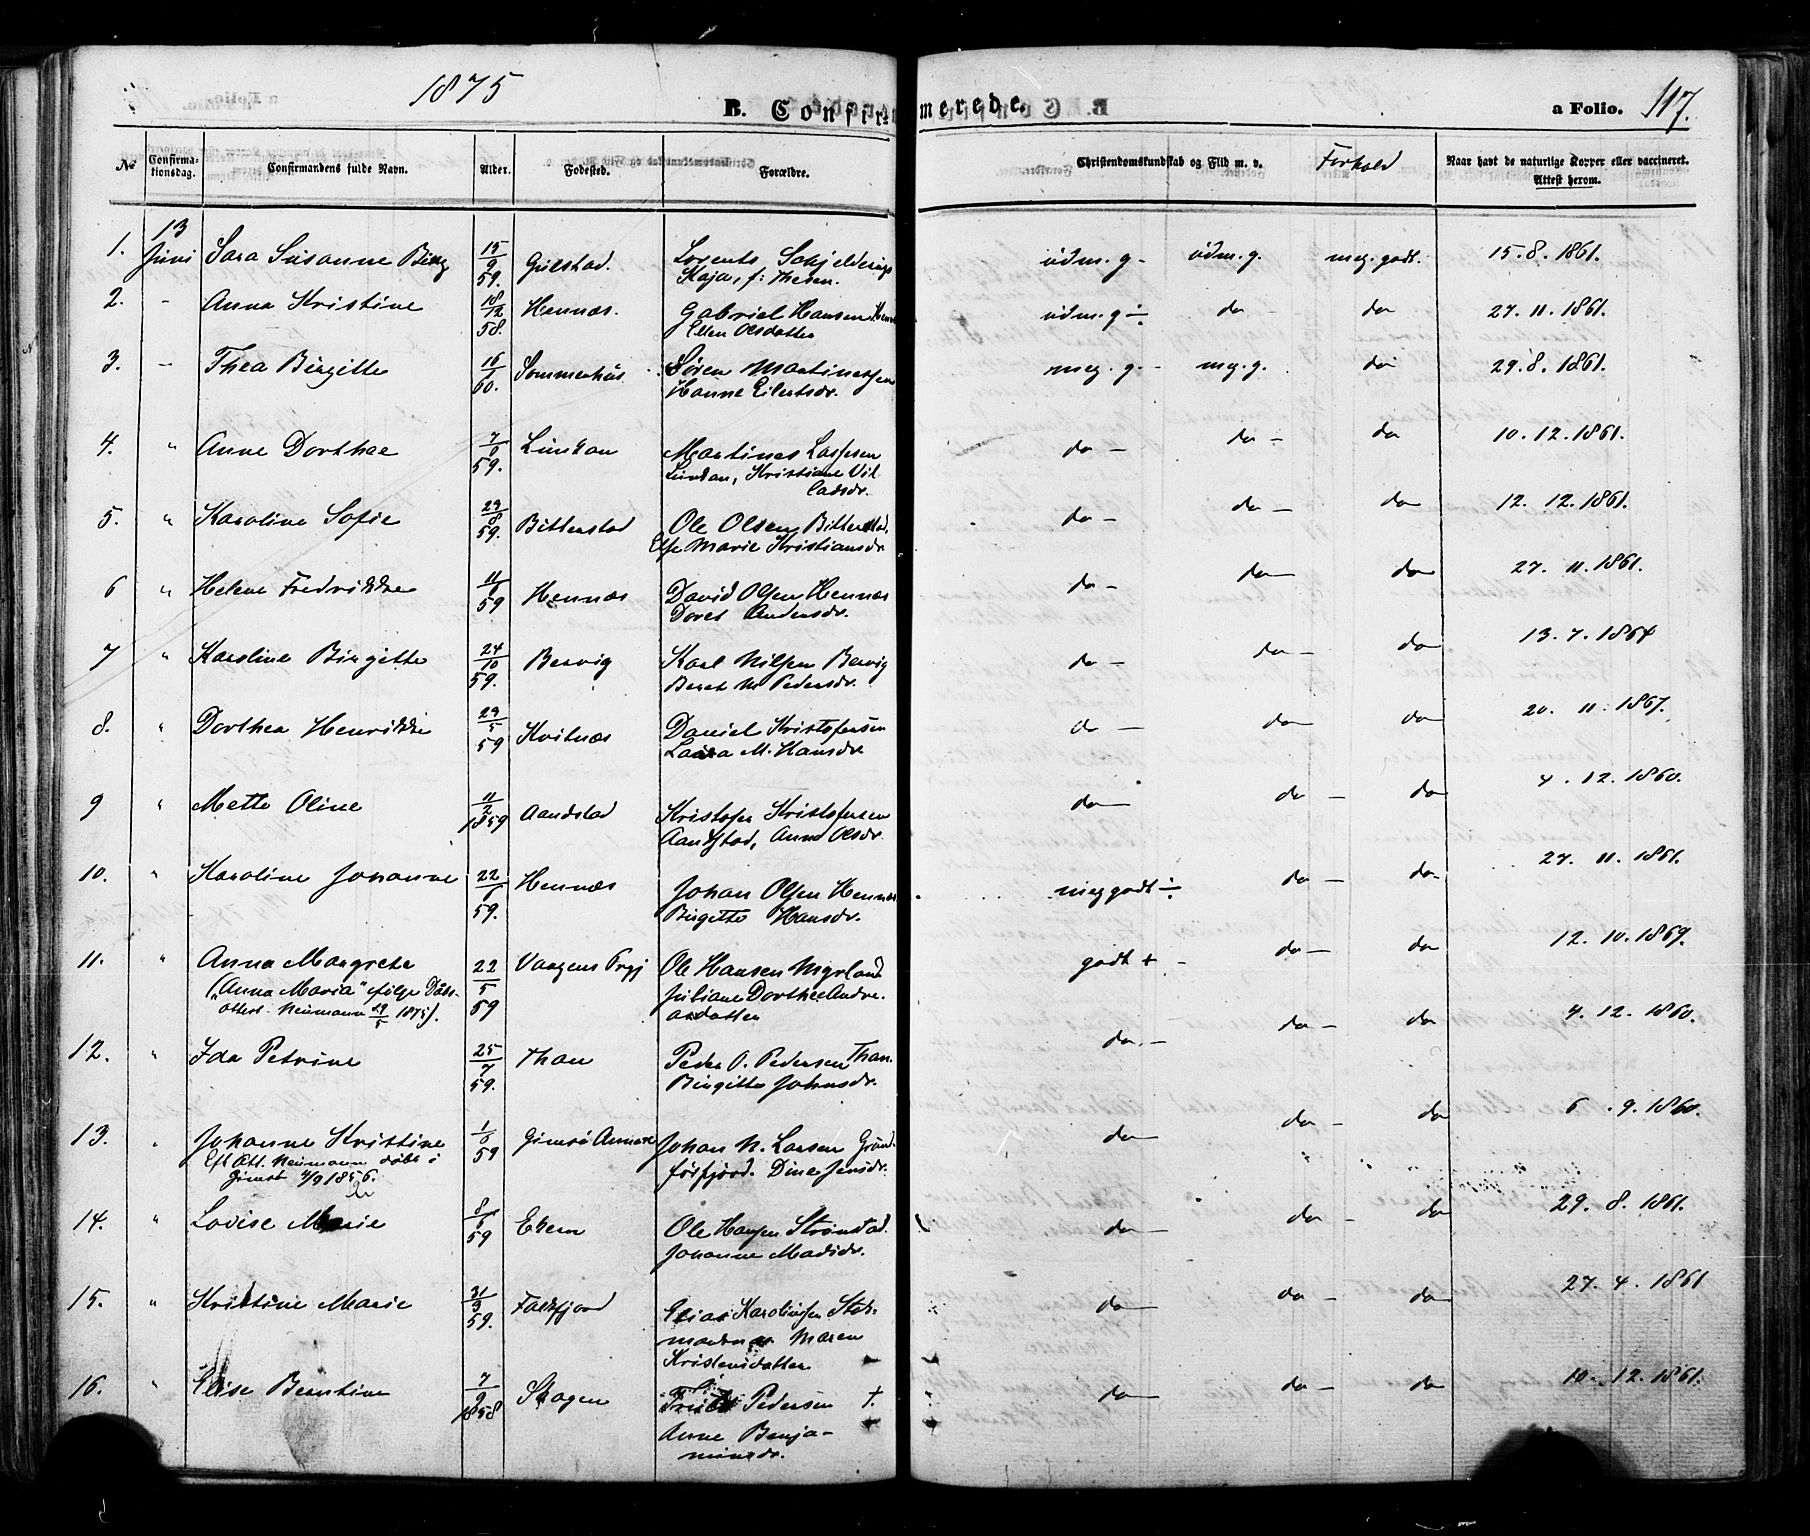 1875
B. Confirmerede.
a Folio. 117.
No Confirmationsdag. Confirmandens fulde Navn. Alder. Fødested. Forældre. Christendomskundskab og Flid m. v. Forhold Naar havt de naturlige Kopper eller vaccineret. Attest herom.
1. 13 Juni Sara Susanne Bing 15/9 59. Gulstad. Lorents Schjelderup udm. g. udm. g. meg. godt. 15. 8. 1861.
Kaja, f: Thesen.
2. - Anna Kristine 18/12 58. Hennæs. Gabriel Hansen udm. g ÷ do - do 27. 11. 1861.
Ellen Olsdatter
3. - Thea Birgitte 16/1 60. Sommerhus Søren Martinessen meg. g. - meg. g. do 29. 8. 1861.
Hanne Eilertsdr.
4. " Anne Dorthea 7/6 59. Lunkan Martines Lassesen do - do - do 10. 12. 1861.
Lunkan, Kristiane Vil
ladsdr.
5. " Karoline Sofie 29/8 59. Bitterstad Ole Olsen Bitterstad do - do - do 12. 12. 1861.
Else Marie Kristiansdr
6 " Helene Fredrikke 11/6 59 Hennæs David Olsen Hennæs do - do do 27. 11. 1861.
Doret Andersdr.
7 " Karoline Birgitte 24/10 59. Bervig Karl Nilsen Bervig do - do - do 13. 7. 1864
Beret M. Pedersdr.
8. " Dorthea Henrikke 29/5 59 Kvitnæs Daniel Kristofersen do - do do 20. 11. 1867.
Laura M. Hansdr
9 " Mette Oline 11/2 1859 Aandstad Kristofer Kristofersen do do - do 4. 12. 1860.
Aandstad, Anna Olsdr.
10. " Karoline Johanne 22/6 59. Hennæs Johan Olsen Hennæs meg godt ÷ do - do 27. 11. 1861.
Birgitte Hansdr.
11. " Anna Margrete 22/5 59 Vaagens Prgj Ole Hansen Myrland godt + - do - do 12. 10. 1869.
("Anna Maria" ifølge Dåbs- Juliane Dorthea Andre-
attest. Neumann 29/5 1875). asdatter
12. " Ida Petrine 25/7 59. Than Peder O. Pedersen Than do. - do - do 4. 12. 1860.
Birgitte Johnsdr.
13. " Johanne Kristine 1/6 59 Gimsø Annex Johan N. Larsen Grund do do - do 6. 9. 1860.
Eft Att. Neumann døbt i førfjord. Dine Jensdr.
Gimsø 4/9 1856.
14. " Lovise Marie 8/6 59 Ekern Ole Hansen Strønstad. do - do - do 29. 8. 1861.
Johanne Madsdr.
15. " Kristine Marie 31/3 59. Falkfjord Elias Karolinsen Stok- do do - do 27. 4. 1861
marknæs Maren
Kristensdatter
16. " Elise Berntine 7/9 1858 Skogen Pedersen †. do do - do 10. 12. 1861.
Anne Benja-
minsdr.